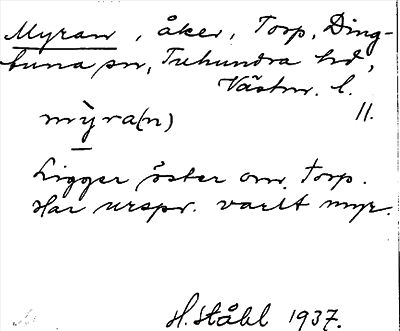 Myran, åker, Torp, Ding-
tuna sn, Tuhundra hd,
Västm. l.
11.
mỳra(n)
Ligger öster om Torp.
Har urspr. varit myr.
H. Ståhl 1937.